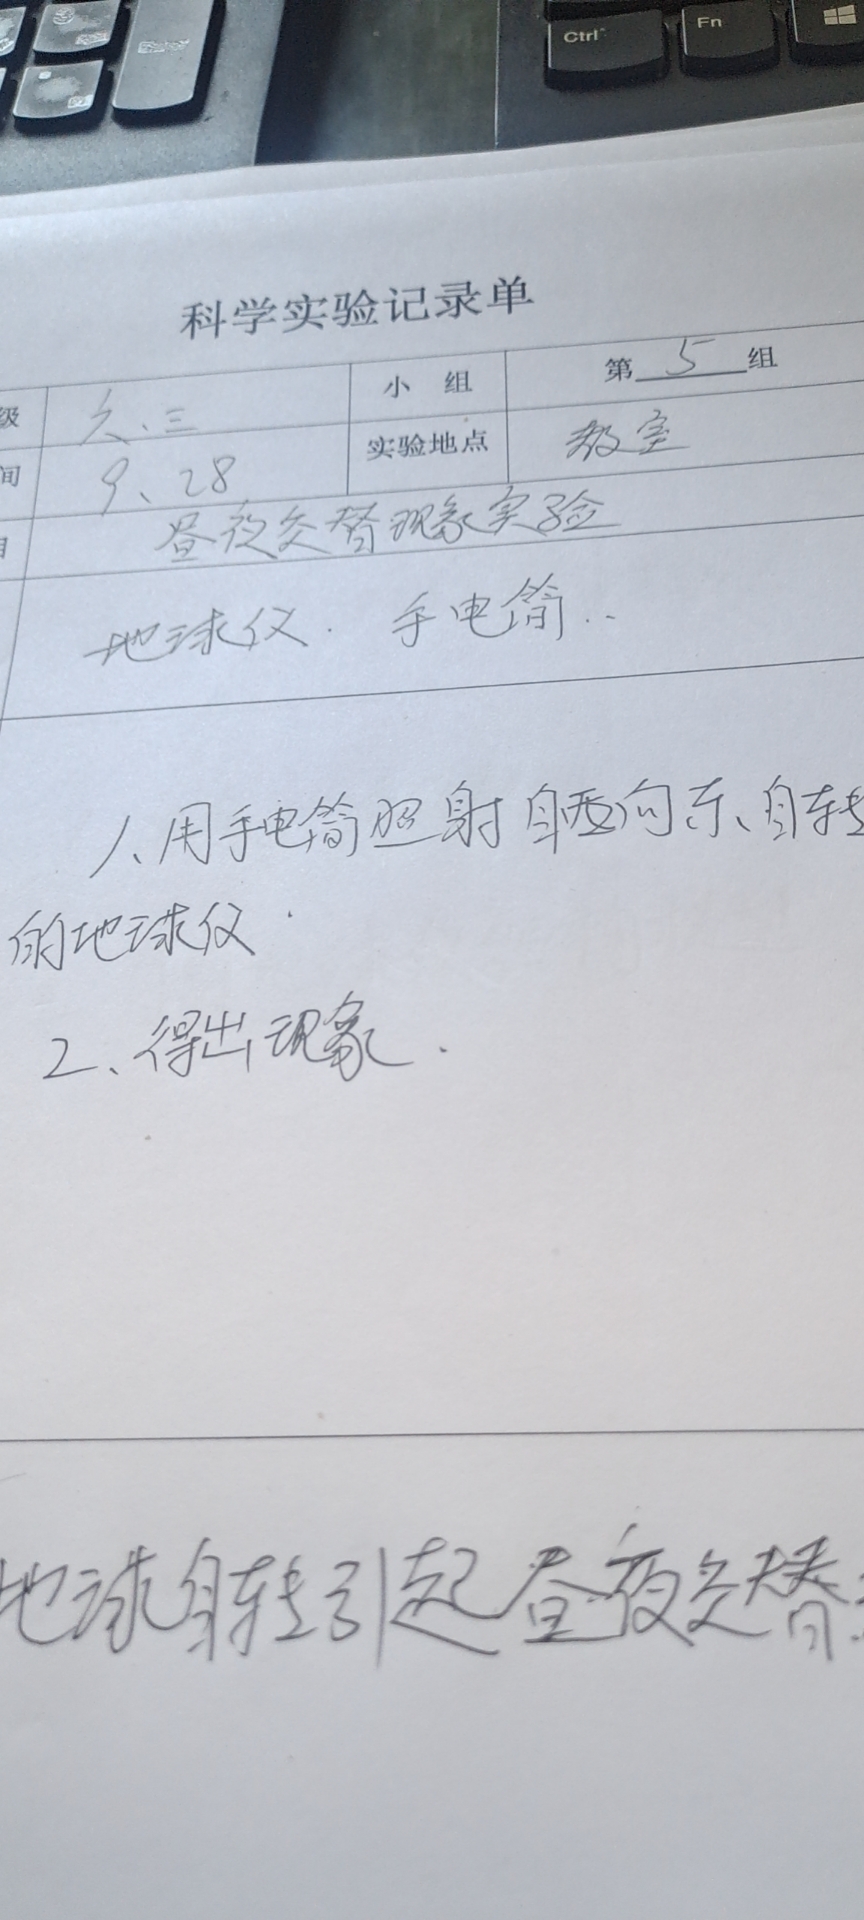 Ctrl Fn
科学实验记录单
级 六、三 小组 第5组
间 9、28 实验地点 教室
昼夜交替现象实验
地球仪. 手电筒..
1、用手电筒照射自西向东、自转
的地球仪.
2、得出现象.
地球自转引起昼夜交替